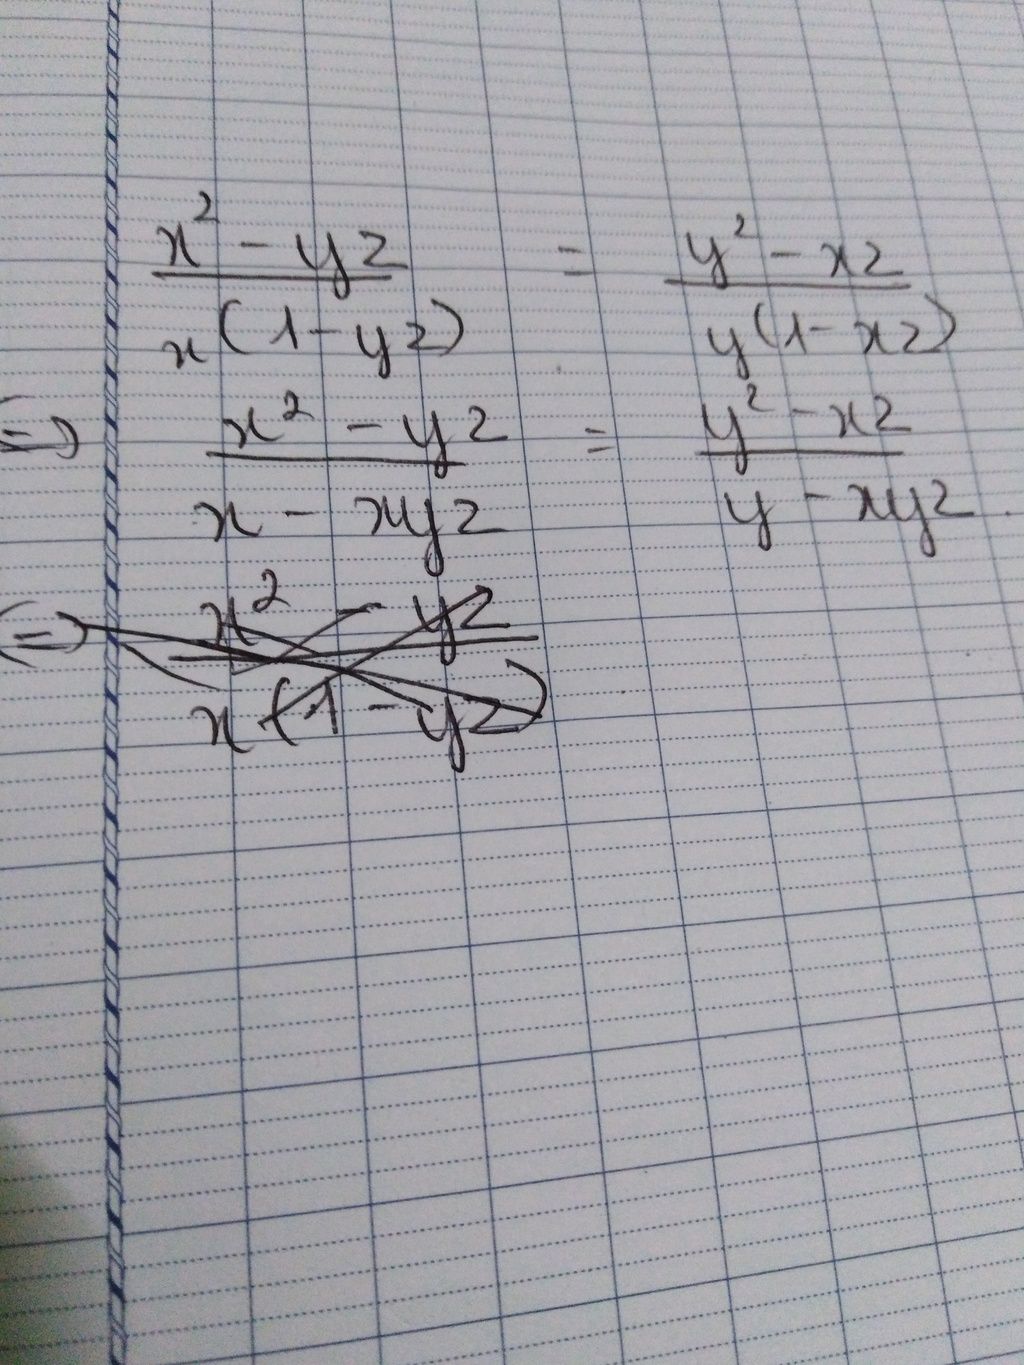 x² - yz / x(1 - yz) = y² - xz / y(1 - xz)
=> x² - yz / x - xyz = y² - xz / y - xyz.
=> x² - yz / x(1 - yz)